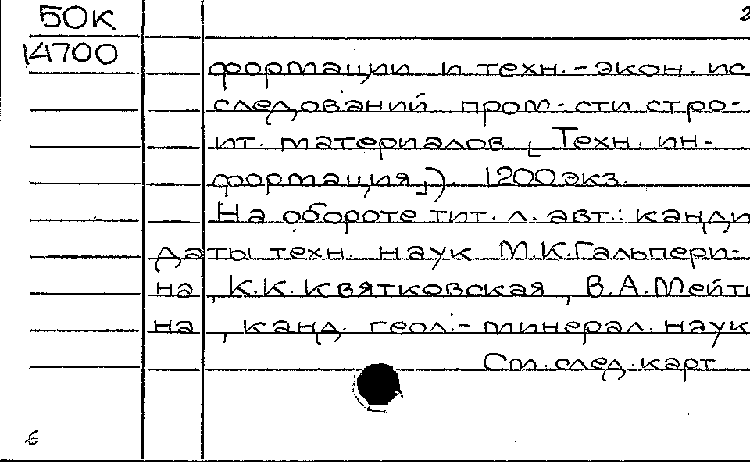 50К
2
14700
формации и техн.-экон. ис
следований пром-сти стро-
ит. материалов [Техн. ин-
формация]). 1200 экз.
На обороте тит. л. авт.: канди
даты техн. наук М.К.Гальпери-
на, К.К.Квятковская, В.А.Мейти
на, канд. геол.-минерал. наук
См. след. карт
6